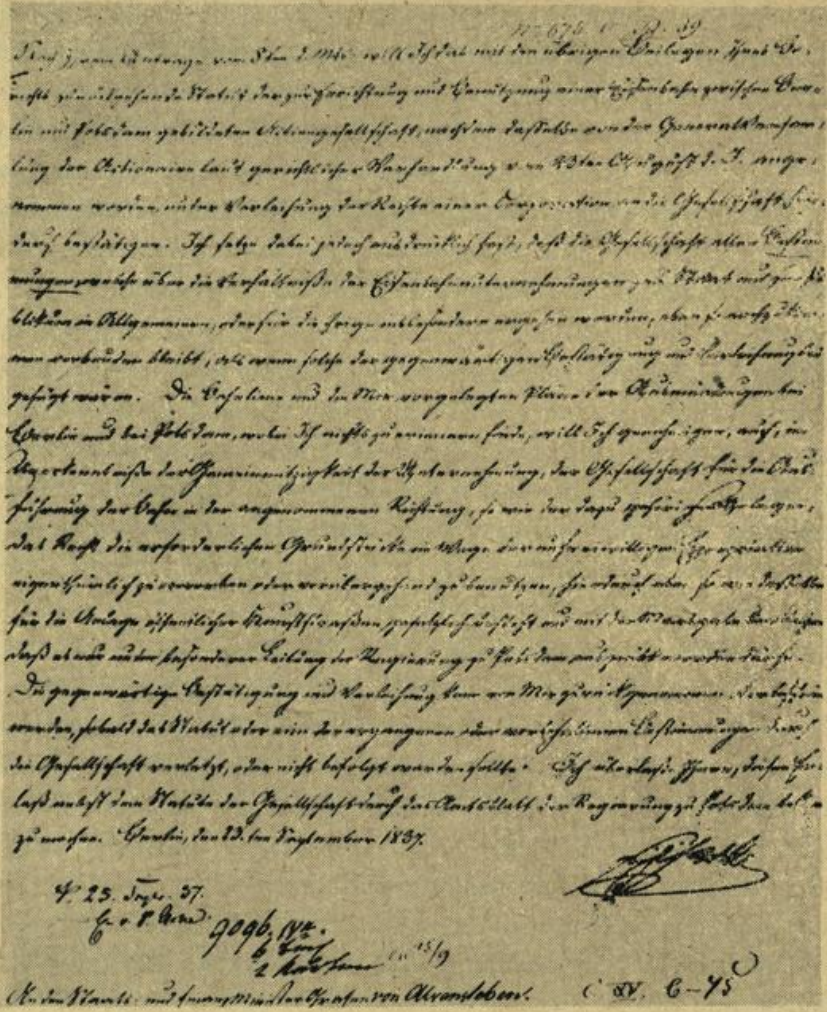 Auf Ihren Antrage vom 8ten d. Mts. will Ich das mit den übrigen Beilagen Ihres Be-
richts zurückgehende Statut der zur Errichtung und Benutzung einer Eisenbahn zwischen Ber-
lin und Potsdam gebildeten Actiengesellschaft, nachdem dasselbe von der Generalversam-
lung der Actionaire laut gerichtlicher Verhandlung vom 23ten August d. J. ange-
nommen worden, unter Verleihung der Rechte einer Corporation an die Gesellschaft hier-
durch bestätigen. Ich setze dabei jedoch ausdrücklich fest, daß die Gesellschaft allen Bestim-
mungen, welche über die Verhältniße der Eisenbahnunternehmungen zum Staat und zum Pu-
blikum im Allgemeinen, oder für die insbesondere ergehen werden, eben so nachzukom-
men verbunden bleibt, als wenn solche der gegenwärtigen Bestätigung und Verleihung bei-
gefügt wären. Die Bahnlinie und die Mir vorgelegten Pläne der Ausmündungen bei
Berlin und bei Potsdam, wobei Ich nichts zu erinnern finde, will Ich genehmigen, auch, in
Anerkenntniße der Gemeinnützigkeit der Unternehmung, der Gesellschaft für die Aus-
führung der Bahn in der angenommenen Richtung, so wie der dazu gehörigen Anlagen,
das Recht die erforderlichen Grundstücke im Wege der unfreiwilligen Expropriation
eigenthümlich zu erwerben oder vorübergehend zu benutzen, hierdurch eben so wie dasselbe
für die Anlage öffentlicher Kunststraßen gesetzlich besteht und mit der Maaßgabe
daß es nur unter besonderer Leitung der Regierung zu Potsdam ausgeübt werden dürfe.
Die gegenwärtige Bestätigung und Verleihung kann von Mir zurückgenommen
werden, sobald das Statut oder eine der ergangenen oder vorbehaltenen Bestimmungen durch
die Gesellschaft verletzt, oder nicht befolgt werden sollte. Ich überlasse Ihnen, diesen Er-
laß nebst dem Statute der Gesellschaft durch das Amtsblatt der Regierung zu Potsdam
zu machen. Berlin, den September 1837.
25. 37.
9096.
15/9
An den Staats- und Finanz-Minister Grafen von Alvensleben.